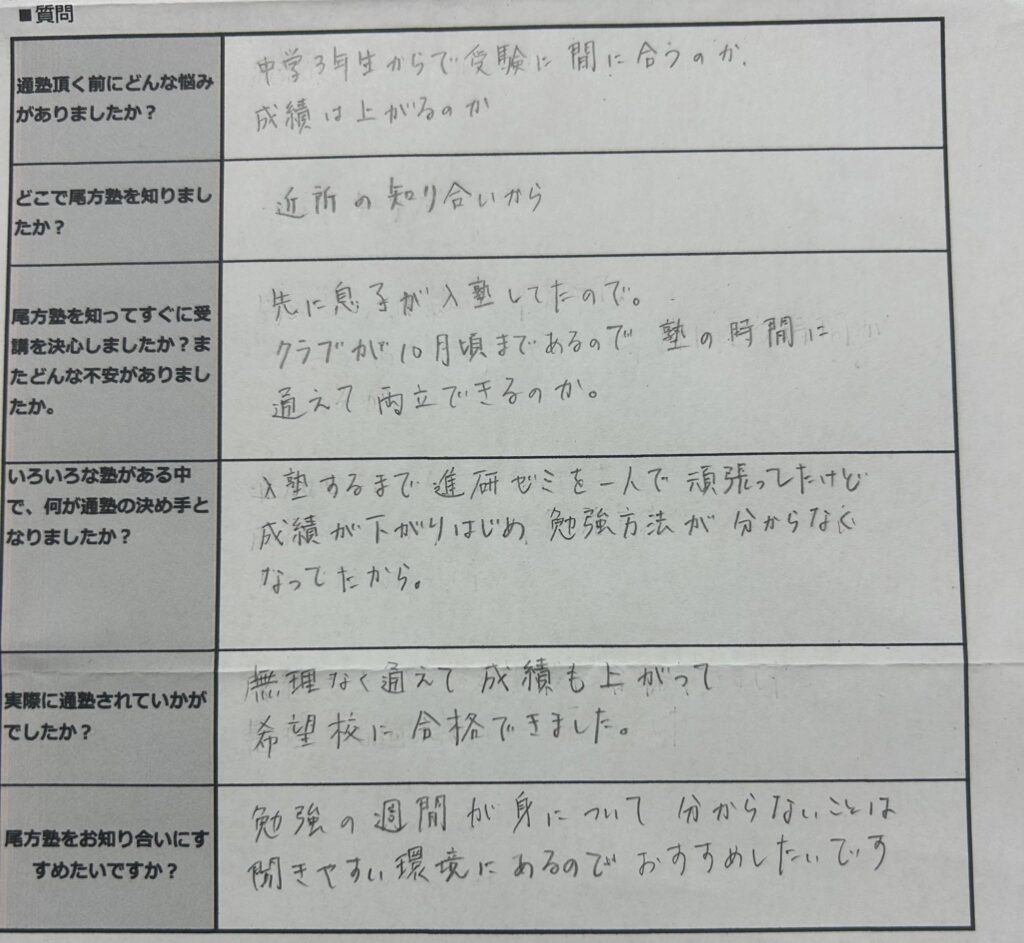 ■質問
通塾頂く前にどんな悩み
がありましたか？
中学3年生からで受験に間に合うのか、
成績は上がるのか
どこで尾方塾を知りまし
たか？
近所の知り合いから
尾方塾を知ってすぐに受
講を決心しましたか？ま
たどんな不安がありまし
たか。
先に息子が入塾してたので。
クラブが10月頃まであるので塾の時間に
通えて両立できるのか。
いろいろな塾がある中
で、何が通塾の決め手と
なりましたか？
入塾するまで進研ゼミを一人で頑張ってたけど
成績が下がりはじめ勉強方法が分からなく
なってたから。
実際に通塾されていかが
でしたか？
無理なく通えて成績も上がって
希望校に合格できました。
尾方塾をお知り合いにす
すめたいですか？
勉強の週間が身について分からないことは
聞きやすい環境にあるのでおすすめしたいです